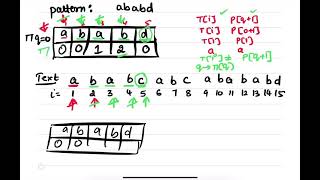 pattern: ababd
1 2 3 4 5
Πq=0 a b a b d
0 0 1 2 0
T[i] P[q+1]
T[i] P[0+1]
T[i] P[1]
a a
T[i] ≠ P[q+1]
q → Π(q)
Text a b a b c a b c a b a b a b d
i= 1 2 3 4 5 6 7 8 9 10 11 12 13 14 15
a b a b d
0 0